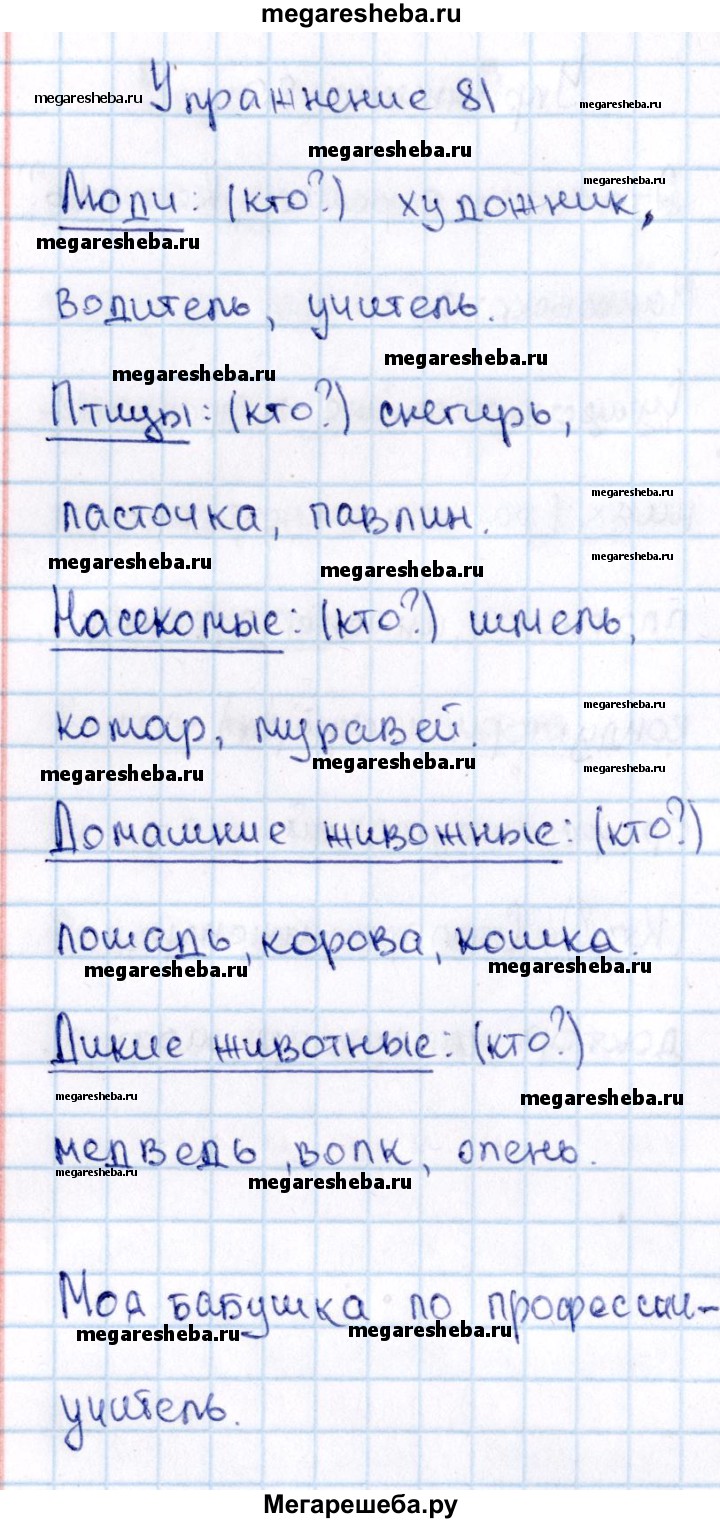 megaresheba.ru
Упражнение 81
megaresheba.ru
megaresheba.ru
megaresheba.ru
Люди: (кто?) художник,
megaresheba.ru
megaresheba.ru
водитель, учитель.
megaresheba.ru
megaresheba.ru
Птицы: (кто?) снегирь,
megaresheba.ru
ласточка, павлин.
megaresheba.ru
megaresheba.ru
megaresheba.ru
Насекомые: (кто?) шмель,
megaresheba.ru
комар, муравей.
megaresheba.ru
megaresheba.ru
megaresheba.ru
Домашние живожные: (кто?)
лошадь, корова, кошка.
megaresheba.ru
megaresheba.ru
Дикие животные: (кто?)
megaresheba.ru
megaresheba.ru
медведь, волк, олень.
megaresheba.ru
megaresheba.ru
Моя бабушка по профессии-
megaresheba.ru
megaresheba.ru
учитель.
Мегарешеба.ру